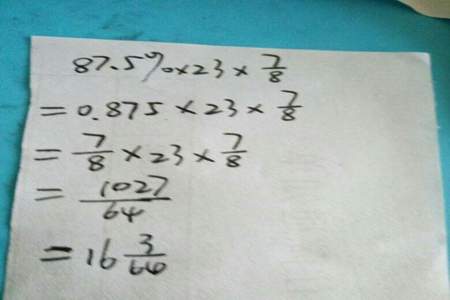 87.5%×23×7/8
=0.875×23×7/8
=7/8×23×7/8
=1027/64
=16 3/64